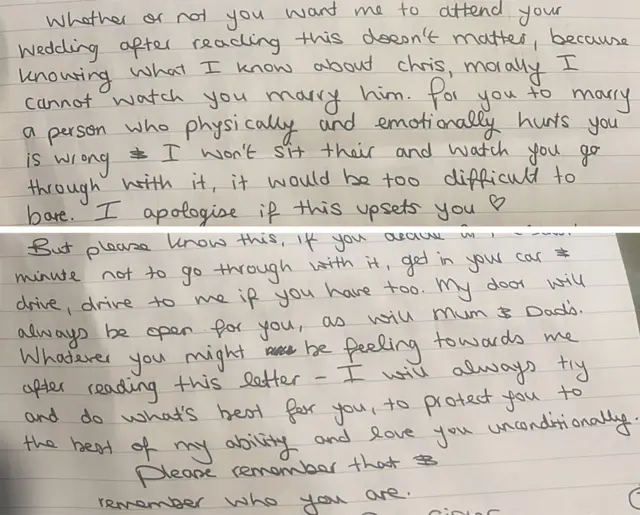 Whether or not you want me to attend your
wedding after reading this doesn't matter, because
knowing what I know about chris, morally I
cannot watch you marry him. for you to marry
a person who physically and emotionally hurts you
is wrong & I won't sit their and watch you go
through with it, it would be too difficult to
bare. I apologise if this upsets you ♡
But please know this, if you
minute not to go through with it, get in your car &
drive, drive to me if you have too. My door will
always be open for you, as will Mum & Dad's.
Whatever you might be feeling towards me
after reading this letter - I will always try
and do what's best for you, to protect you to
the best of my ability and love you unconditionally.
Please remember that &
remember who you are.